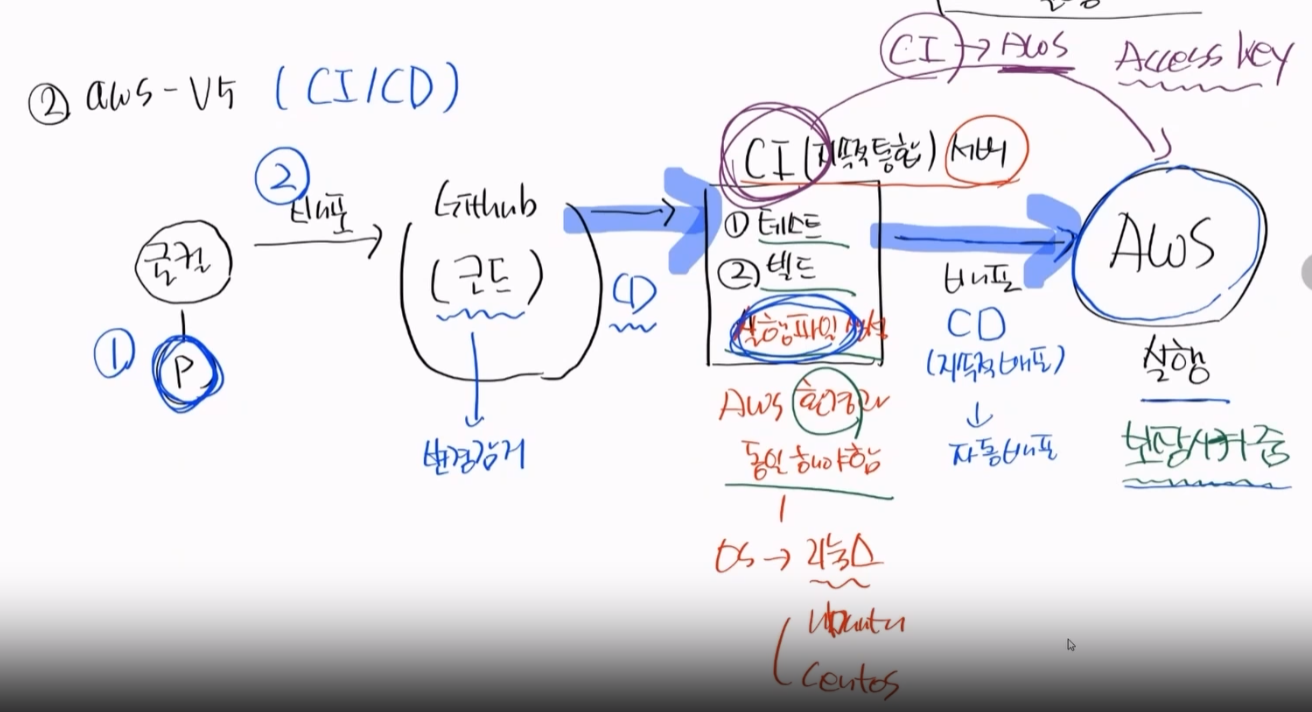 CI → AWS Access key
② aws-V5 (CI/CD)
CI (지속적통합) 서버
②
배포
Github
(코드)
로컬
① P
CD
변경감지
① 테스트
② 빌드
실행파일 생성
AWS 환경과
동일해야함
OS → 리눅스
Ubuntu
Centos
배포
CD
(지속적배포)
↓
자동배포
AWS
실행
보장시켜줌